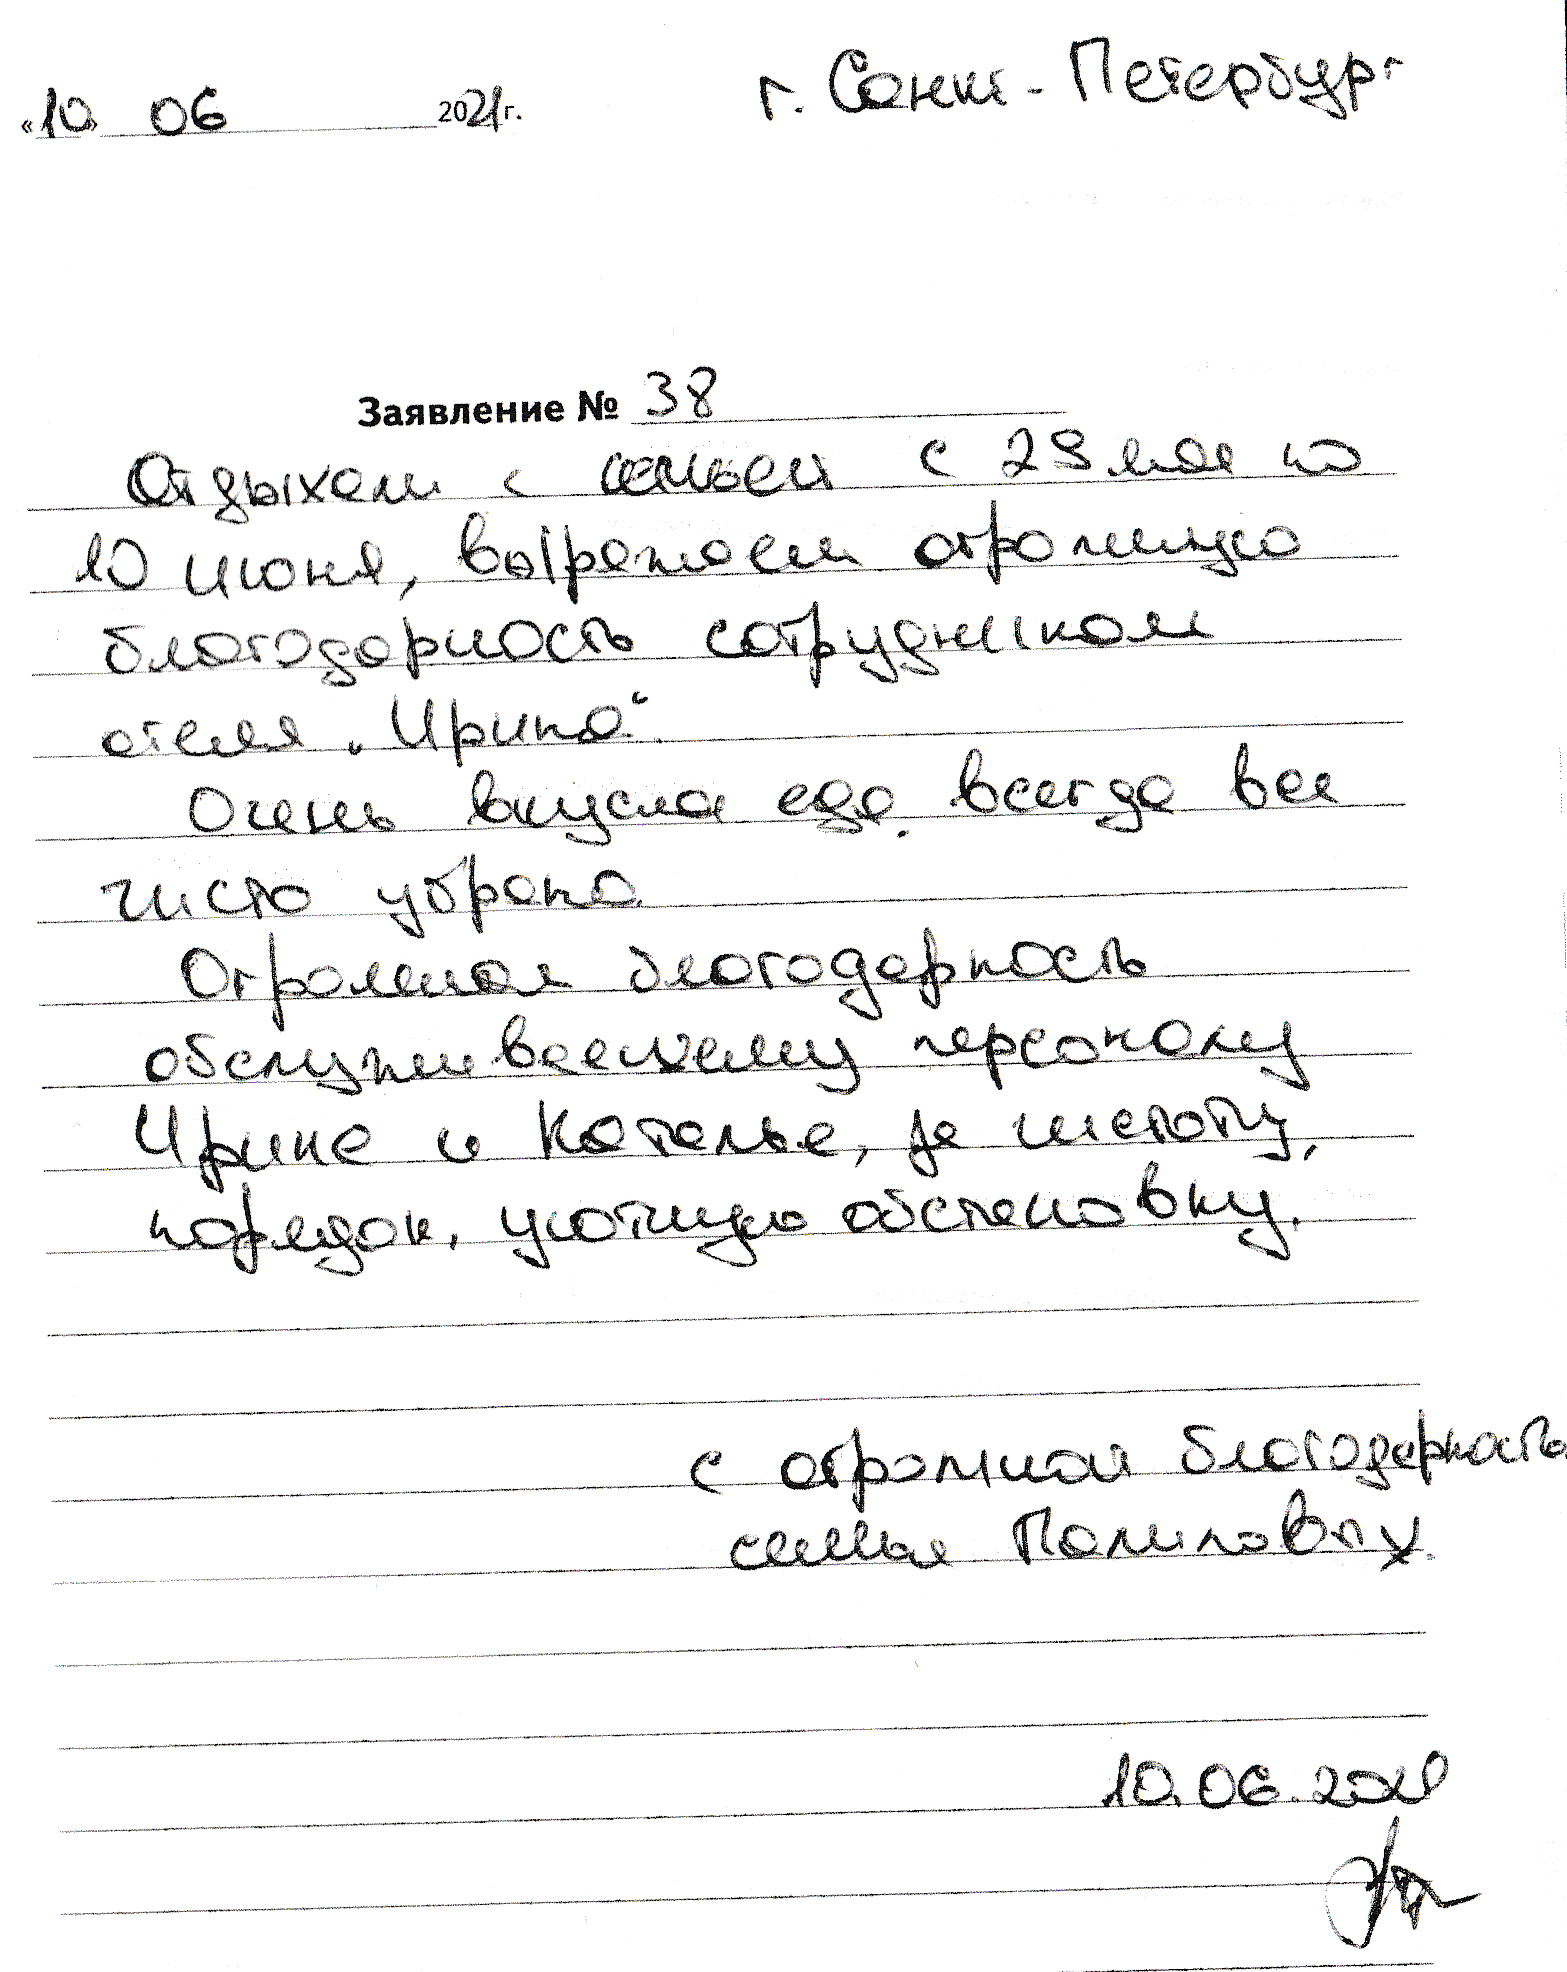 «10» 06 2021г. г. Санкт-Петербург
Заявление № 38
Отдыхали с семьей с 29 мая по
10 июня, выражаем огромную
благодарность сотрудникам
отеля "Ирина".
Очень вкусная еда, всегда все
чисто убрано.
Огромная благодарность
обслуживающему персоналу
Ирине и Наталье, за чистоту,
порядок, уютную обстановку.
с огромной благодарность
семья
10.06.2021